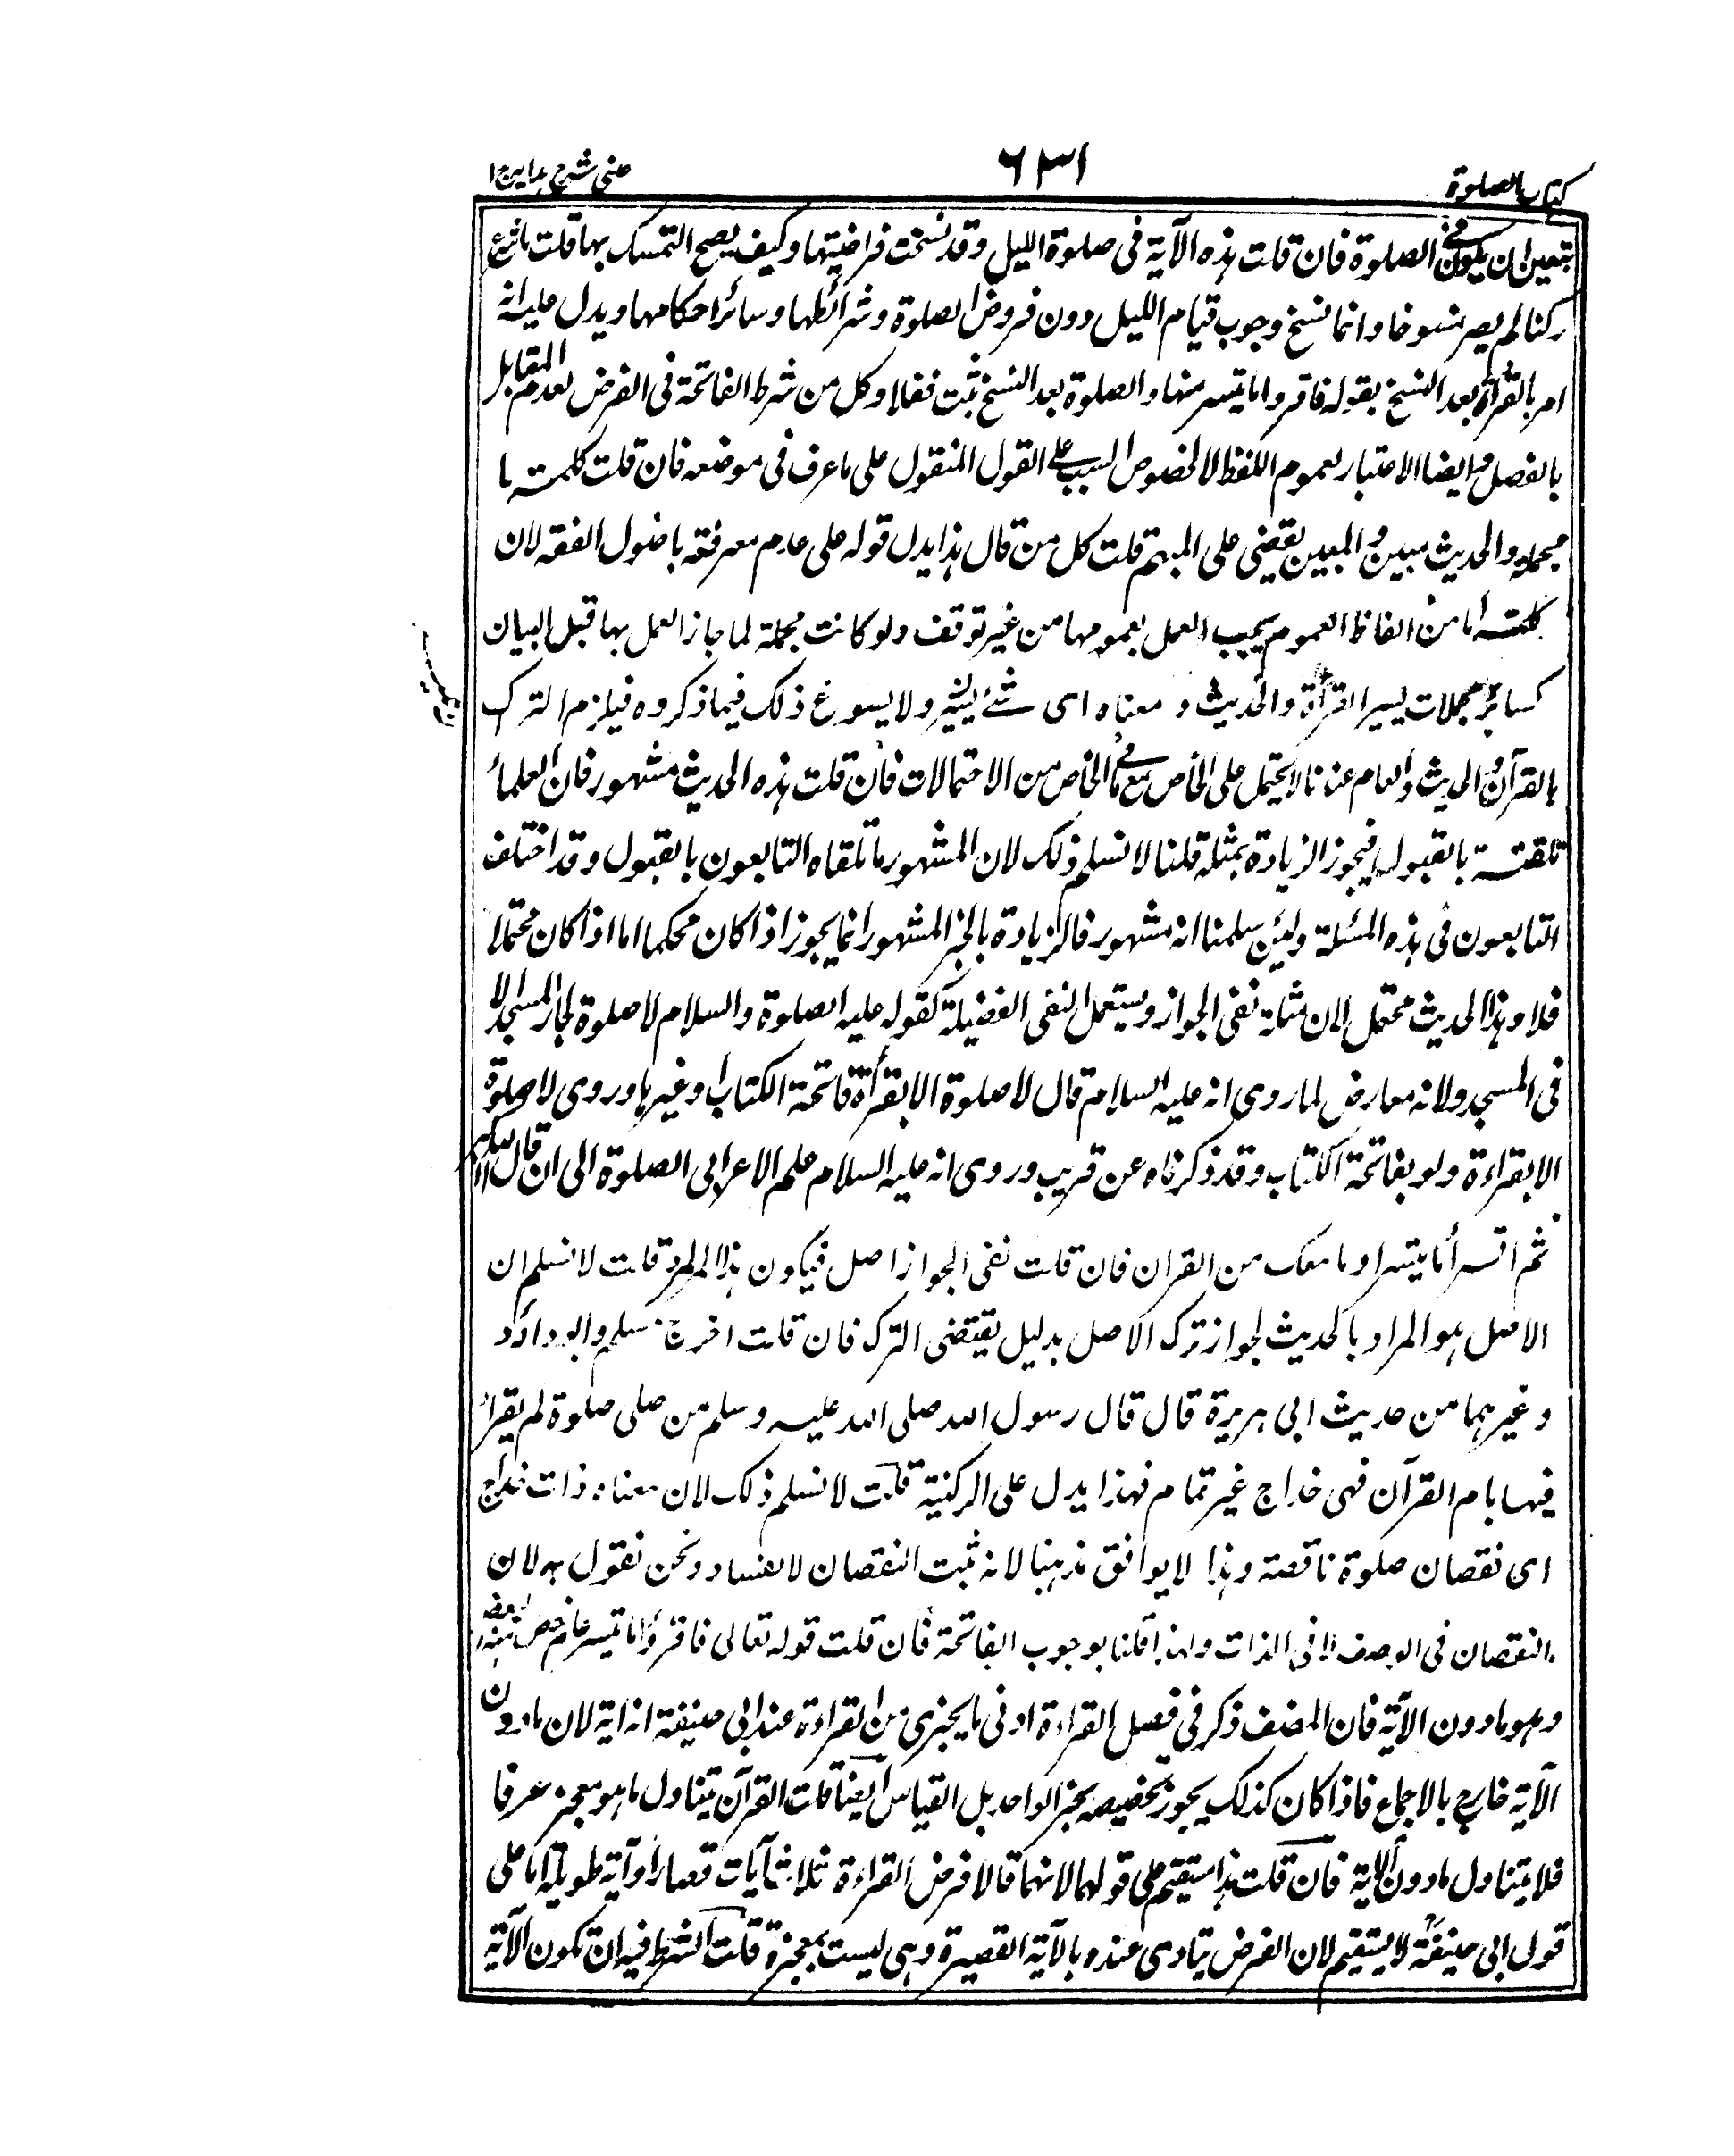 كتاب الصلوة
٦٣١
عینی شرح ہدایہ ج ۱
فتعين ان يكون فى الصلوة فان قلت هذه الآية فى صلوة الليل وقد نسخت فرضيتها وكيف يصح التمسك بها قلت ما شرع
ركنا لم يصر منسوخا وانما نسخ وجوب قيام الليل دون فروض الصلوة وشرائطها وسائر احكامها ويدل عليه انه
امر بالقرأة بعد النسخ بقوله فاقروا ما تيسر منها والصلوة بعد النسخ ثبت نفلا وكل من شرط الفاتحة فى الفرض لعدم المقابل
بالفصل وايضا الاعتبار لعموم اللفظ لا لخصوص السبب على القول المنقول على ما عرف فى موضعه فان قلت كلمة ما
مجملة والحديث مبين والمبين يقضى على المبهم قلت كل من قال هذا يدل قوله على عدم معرفته باصول الفقه لان
كلمة ما من الفاظ العموم يجب العمل بعمومها من غير توقف ولو كانت مجملة لما جاز العمل بها قبل البيان
كسائر مجملات يسير القرأة والحديث و معناه اى شئ يتيسر ولا يسوغ ذلك فيما ذكروه فيلزم الترك
بالقرآن والحديث والعام عندنا لا يحتمل على الخاص مع ما فى الخاص من الاحتمالات فان قلت هذه الحديث مشهور فان العلماء
تلقته بالقبول فيجوز الزيادة بمثله قلنا لا نسلم ذلك لان المشهور ما تلقاه التابعون بالقبول وقد اختلف
التابعون فى هذه المسئلة ولئن سلمنا انه مشهور فالزيادة بالخبر المشهور انما يجوز اذا كان محكما اما اذا كان محتملا
فلا وهذا الحديث محتمل لان مثله نفى الجواز ويستعمل النفى الفضيلة كقوله عليه الصلوة والسلام لا صلوة لجار المسجد الا
فى المسجد ولانه معارض لما روى انه عليه السلام قال لا صلوة الا بقرأة فاتحة الكتاب او غيرها وروى لا صلوة
الا بقراءة ولو بفاتحة الكتاب وقد ذكرناه عن قريب وروى انه عليه السلام علم الاعرابى الصلوة الى ان قال له كبر
ثم اقرأ ما تيسر او ما معك من القران فان قلت نفى الجواز اصل فيكون هذا المراد قلت لا نسلم ان
الاصل هو المراد بالحديث لجواز ترك الاصل بدليل يقتضى الترك فان قلت اخرج مسلم وابو داؤد
وغيرهما من حديث ابى هريرة قال قال رسول الله صلى الله عليه وسلم من صلى صلوة لم يقرأ
فيها بام القرآن فهى خداج غير تمام فهذا يدل على الركنية قلت لا نسلم ذلك لان معناه ذات خداج
اى نقصان صلوة ناقصة وهذا لا يوافق مذهبنا لانه ثبت النقصان لا الفساد ونحن نقول به لان
النقصان فى الوصف لا فى الذات ولهذا قلنا بوجوب الفاتحة فان قلت قوله تعالى فاقرؤا ما تيسر عام خص منه البعض
وهو ما دون الآية فان المصنف ذكر فى فصل القراءة ادنى ما يجزى من القراءة عند ابى حنيفة انه اية لان ما دون
الآية خارج بالاجماع فاذا كان كذلك يجوز تخصيصه بخبر الواحد بل القياس ايضا قلت القرآن يتناول ما هو معجز عرفا
فلا يتناول ما دون الاية فان قلت هذا يستقيم على قولهما لانهما قالا فرض القراءة ثلاث آيات قصار او آية طويلة اما على
قول ابى حنيفة لا يستقيم لان الفرض يتادى عنده بالآية القصيرة وهى ليست بمعجزة قلت الشرط فيه ان تكون الآية